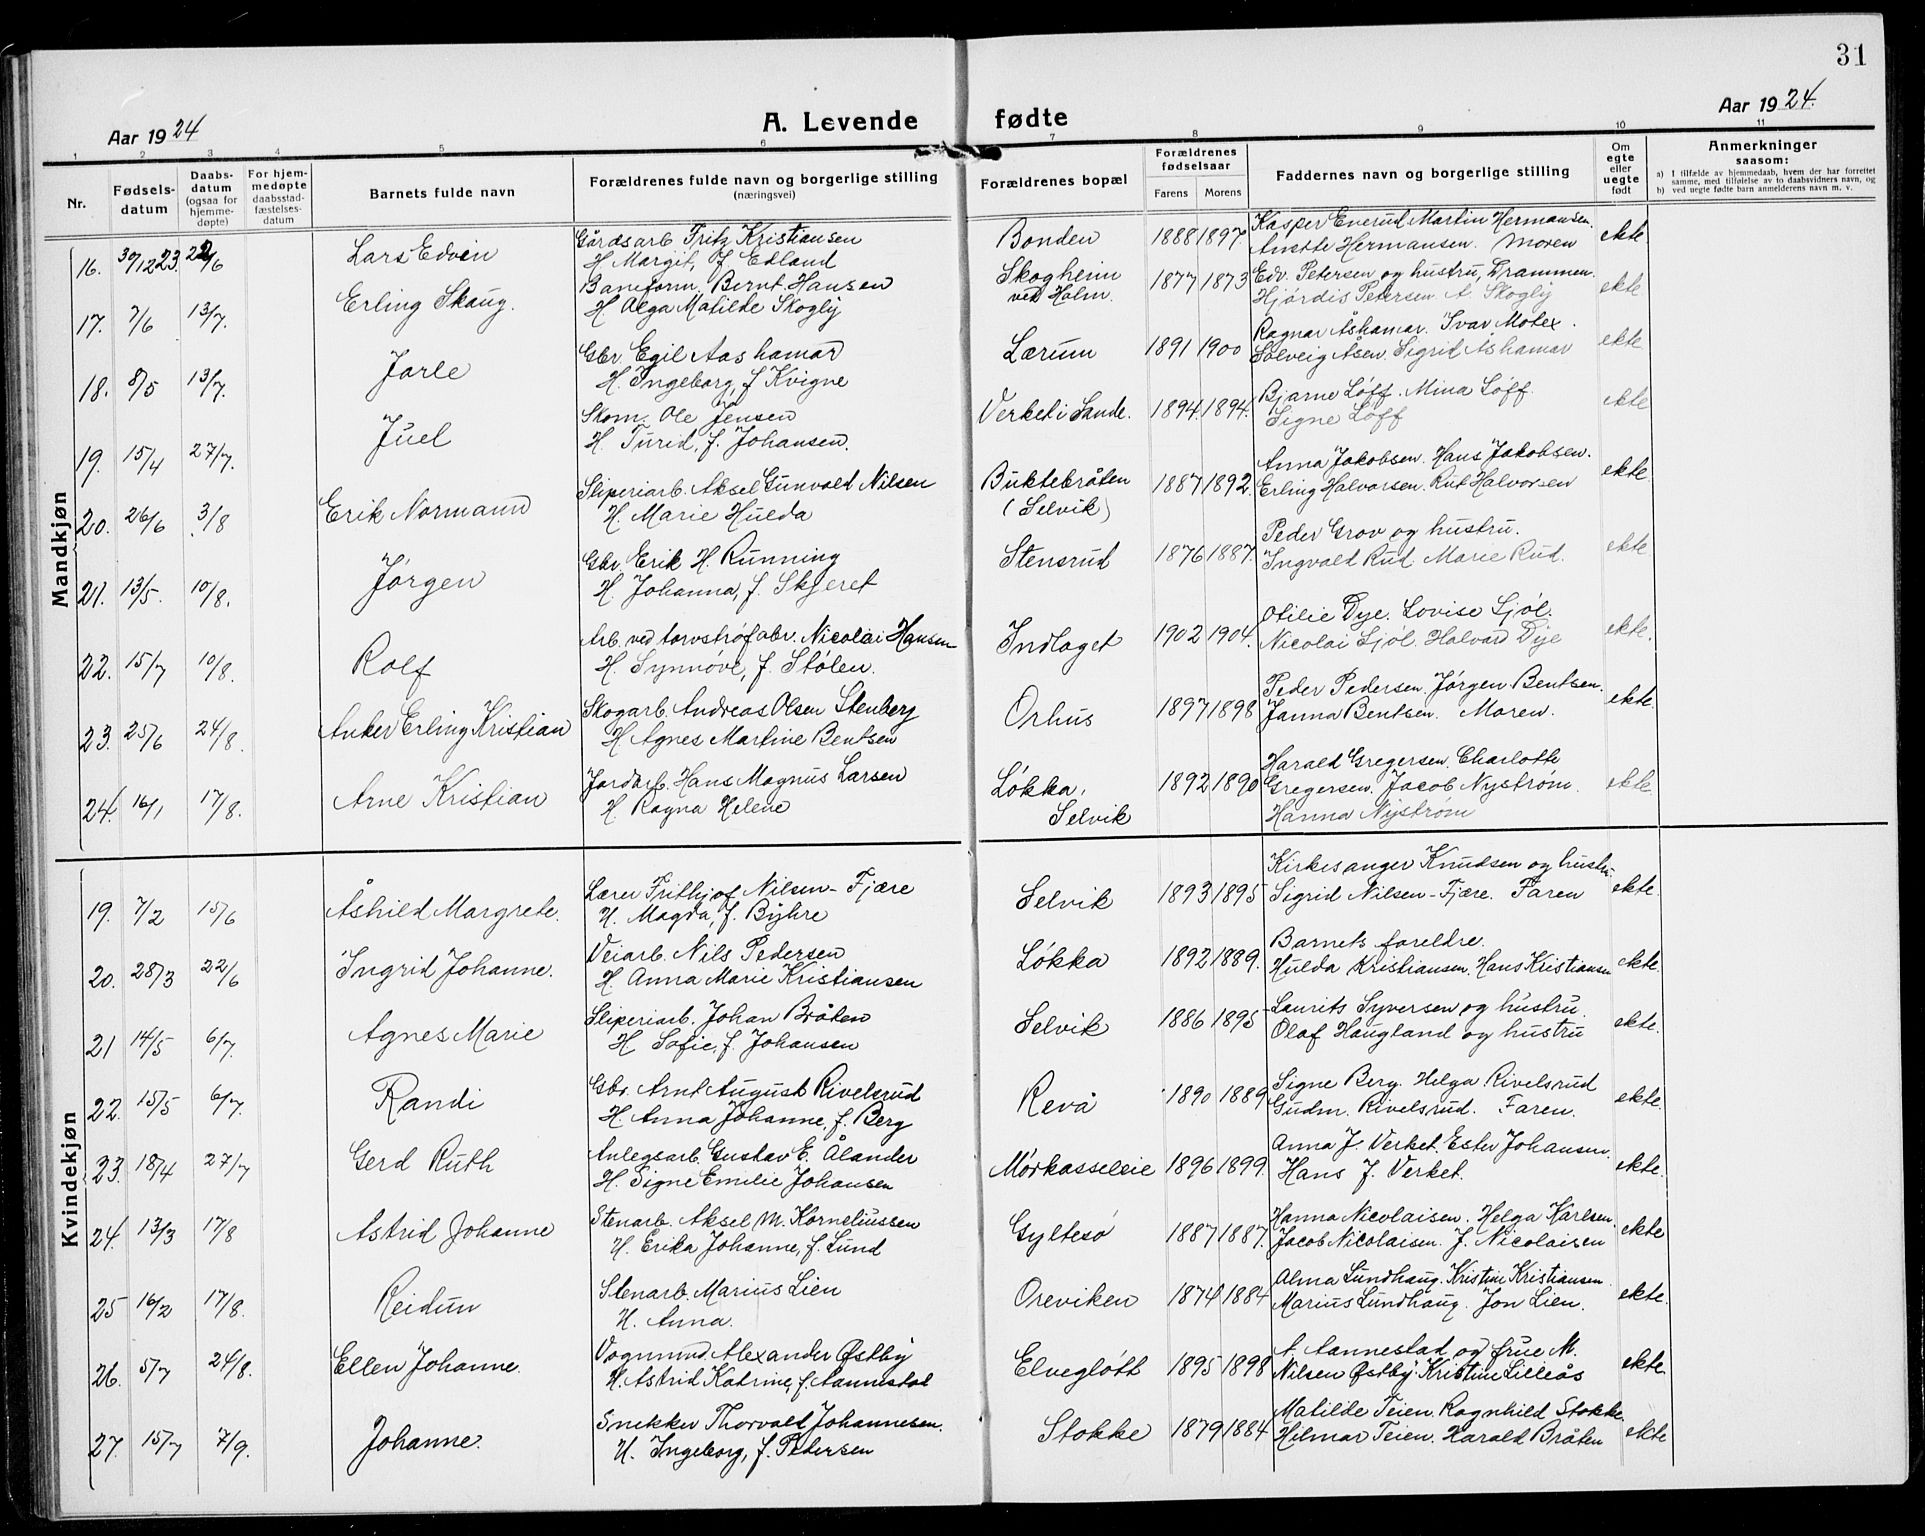 31
Aar 1924
A. Levende fødte
Aar 1924.
1 2 3 4 5 6 7 8 9 10 11
Nr.
Fødsels-datum
Daabs-datum (ogsaa for hjemme-døpte)
For hjem-medøpte daabsstad-fæstelses-datum
Barnets fulde navn
Forældrenes fulde navn og borgerlige stilling (næringsvei)
Forældrenes bopæl
Forældrenes fødselsaar
Farens Morens
Faddernes navn og borgerlige stilling
Om egte eller uegte født
Anmerkninger saasom:
a) I tilfælde av hjemmedaab, hvem der har forrettet samme, med tilføielse av to daabsvidners navn, og
b) ved uegte fødte barn anmelderens navn m. v.
Mandkjøn
16. 30/12 23. 22/6 Lars Edvin Gårdsarb. Fritz Kristiansen Bonden 1888 1897 Kasper Enerud Martin Hermansen. ekte
H. Margit, f. Edland Anette Hermansen. Moren
17. 7/6 13/7. Erling Skaug. Baneform. Bernt Hansen Skogheim 1877 1873 Edv. Petersen og hustru, Drammen. ekte
H. Olga Matilde Skogly ved Holm. Hjørdis Petersen A. Skogly
18. 8/5 13/7. Jarle Gbr. Egil Aashamar Lærum 1891 1900 Ragnar Åshamar. Ivar Motex. ekte
H. Ingeborg, f. Kvigne Solveig Åsen. Sigrid Åshamar
19. 15/4 27/7. Juel Skom. Ole Jensen Verket i Sande. 1894. 1894. Bjarne Løff. Mina Løff. ekte
H. Turid, f. Johansen. Signe Løff
20. 26/6 3/8 Erik Normann Sliperiarb. Aksel Gunvald Nilsen Buktebråten 1887 1892. Anna Jakobsen. Hans Jakobsen. ekte
H. Marie Hulda (Selvik) Erling Halvorsen. Rut Halvorsen
21. 13/5. 10/8. Jørgen Gbr. Erik H. Running Stensrud 1876 1887. Peder Grov og hustru. ekte
H. Johanna, f. Skjeret Ingvald Rud. Marie Rud.
22. 15/7 10/8. Rolf Arb. ved torvstrøfabr. Nicolai Hansen Indlaget 1902 1904. Otilie Dye. Lovise Sjøl. ekte.
H. Synnøve, f. Stølen. Nicolai Sjøl. Halvar Dye
23. 25/6 24/8. Anker Erling Kristian Skogarb. Andreas Olsen Stenberg Orhus 1897 1898 Peder Pedersen. Jørgen Bentsen. ekte
H. Agnes Martine Bentsen Janna Bentsen. Moren.
24. 16/1 17/8. Arne Kristian Jordarb. Hans Magnus Larsen Løkka, 1892 1890 Harald Gregersen. Charlotte ekte.
H. Ragna Helene Selvik Gregersen. Jacob Nystrøm.
Hanna Nystrøm
Kvindekjøn
19. 7/2 15/6 Åshild Margrete. Lærer Frithjof Nilsen-Fjære Selvik 1893 1895 Kirkesanger Knudsen og hustru. ekte.
H. Magda, f. Byhre Sigrid Nilsen-Fjære. Faren
20. 28/3 22/6 Ingrid Johanne. Veiarb. Nils Pedersen Løkka 1892 1889. Barnets foreldre. ekte.
H. Anna Marie Kristiansen Hulda Kristiansen. Hans Kristiansen
21 14/5 6/7. Agnes Marie Sliperiarb. Johan Bråten Selvik 1886 1895 Laurits Syversen og hustru. ekte.
H. Sofie, f. Johansen Olaf Haugland og hustru
22. 15/5 6/7. Randi Gbr. Arnt August Rivelsrud Revå 1890 1889 Signe Berg. Helga Rivelsrud ekte.
H. Anna Johanne, f. Berg Gudm. Rivelsrud. Faren.
23. 18/4 27/7 Gerd Ruth Anlegsarb. Gustav E. Ålander Mørkasseleie 1896 1899. Anna J. Verket. Ester Johansen. ekte.
H. Signe Emilie Johansen Hans J. Verket.
24. 13/3 17/8 Astrid Johanne Stenarb. Aksel M. Korneliussen Gyltesø 1887 1887. Hanna Nicolaisen. Helga Karlsen. ekte
H. Erika Johanne, f. Lund Jacob Nicolaisen. J. Nicolaisen
25 16/2 17/8. Reidun Stenarb. Marius Lien Oreviken 1874 1884 Alma Lundhaug. Kristine Kristiansen. ekte.
H. Anna. Marius Lundhaug. Jon Lien.
26. 5/7 24/8. Ellen Johanne. Vognmand Alexander Østby Elvegløtt 1895 1898 A. Aannestad og frue M. ekte.
H. Astrid Katrine, f. Aannestad Nilsen Østby Kristine Lilleås
27. 15/7 7/9. Johanne. Snekker Thorvald Johannesen. Stokke 1879 1884 Matilde Teien. Ragnhild Stokke ekte
H. Ingeborg, f. Pedersen Hilmar Teien. Harald Bråten